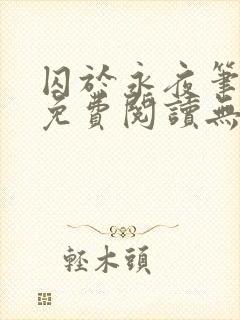 囚於永夜筆
免費閱讀無
輕木頭